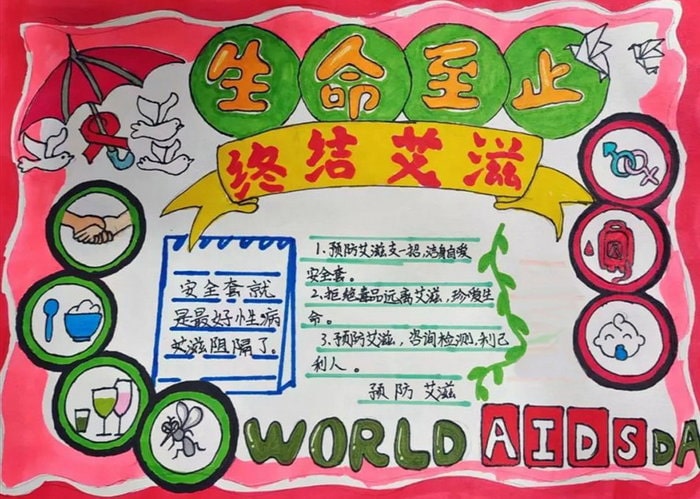 生命至止
终结艾滋
安全套就
是最好性病
艾滋阻隔了.
1.预防艾滋支一招,洁身自爱
安全套。
2.拒绝毒品远离艾滋,珍爱生
命。
3.预防艾滋,咨询检测,利己
利人。
预防艾滋
WORLD AIDS DA